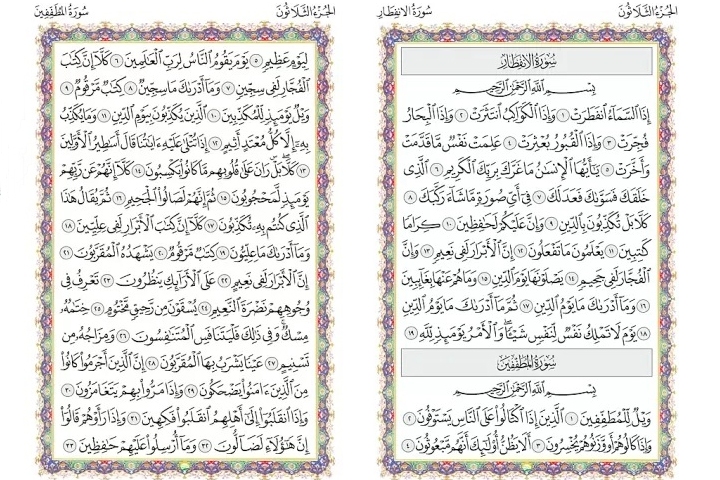 الجزء الثلاثون سورة الانفطار
سُورَةُ الانفِطَارِ
بِسْمِ اللَّهِ الرَّحْمَٰنِ الرَّحِيمِ
إِذَا السَّمَاءُ انفَطَرَتْ ١ وَإِذَا الْكَوَاكِبُ انتَثَرَتْ ٢ وَإِذَا الْبِحَارُ
فُجِّرَتْ ٣ وَإِذَا الْقُبُورُ بُعْثِرَتْ ٤ عَلِمَتْ نَفْسٌ مَّا قَدَّمَتْ
وَأَخَّرَتْ ٥ يَا أَيُّهَا الْإِنسَانُ مَا غَرَّكَ بِرَبِّكَ الْكَرِيمِ ٦ الَّذِي
خَلَقَكَ فَسَوَّاكَ فَعَدَلَكَ ٧ فِي أَيِّ صُورَةٍ مَّا شَاءَ رَكَّبَكَ ٨
كَلَّا بَلْ تُكَذِّبُونَ بِالدِّينِ ٩ وَإِنَّ عَلَيْكُمْ لَحَافِظِينَ ١٠ كِرَامًا
كَاتِبِينَ ١١ يَعْلَمُونَ مَا تَفْعَلُونَ ١٢ إِنَّ الْأَبْرَارَ لَفِي نَعِيمٍ ١٣ وَإِنَّ
الْفُجَّارَ لَفِي جَحِيمٍ ١٤ يَصْلَوْنَهَا يَوْمَ الدِّينِ ١٥ وَمَا هُمْ عَنْهَا بِغَائِبِينَ
١٦ وَمَا أَدْرَاكَ مَا يَوْمُ الدِّينِ ١٧ ثُمَّ مَا أَدْرَاكَ مَا يَوْمُ الدِّينِ
١٨ يَوْمَ لَا تَمْلِكُ نَفْسٌ لِّنَفْسٍ شَيْئًا وَالْأَمْرُ يَوْمَئِذٍ لِّلَّهِ ١٩
سُورَةُ المُطَفِّفِينَ
بِسْمِ اللَّهِ الرَّحْمَٰنِ الرَّحِيمِ
وَيْلٌ لِّلْمُطَفِّفِينَ ١ الَّذِينَ إِذَا اكْتَالُوا عَلَى النَّاسِ يَسْتَوْفُونَ ٢
وَإِذَا كَالُوهُمْ أَو وَّزَنُوهُمْ يُخْسِرُونَ ٣ أَلَا يَظُنُّ أُولَٰئِكَ أَنَّهُم مَّبْعُوثُونَ ٤
الجزء الثلاثون سورة المطففين
لِيَوْمٍ عَظِيمٍ ٥ يَوْمَ يَقُومُ النَّاسُ لِرَبِّ الْعَالَمِينَ ٦ كَلَّا إِنَّ كِتَابَ
الْفُجَّارِ لَفِي سِجِّينٍ ٧ وَمَا أَدْرَاكَ مَا سِجِّينٌ ٨ كِتَابٌ مَّرْقُومٌ ٩
وَيْلٌ يَوْمَئِذٍ لِّلْمُكَذِّبِينَ ١٠ الَّذِينَ يُكَذِّبُونَ بِيَوْمِ الدِّينِ ١١ وَمَا يُكَذِّبُ
بِهِ إِلَّا كُلُّ مُعْتَدٍ أَثِيمٍ ١٢ إِذَا تُتْلَىٰ عَلَيْهِ آيَاتُنَا قَالَ أَسَاطِيرُ الْأَوَّلِينَ
١٣ كَلَّا بَلْ رَانَ عَلَىٰ قُلُوبِهِم مَّا كَانُوا يَكْسِبُونَ ١٤ كَلَّا إِنَّهُمْ عَن رَّبِّهِمْ
يَوْمَئِذٍ لَّمَحْجُوبُونَ ١٥ ثُمَّ إِنَّهُمْ لَصَالُو الْجَحِيمِ ١٦ ثُمَّ يُقَالُ هَٰذَا
الَّذِي كُنتُم بِهِ تُكَذِّبُونَ ١٧ كَلَّا إِنَّ كِتَابَ الْأَبْرَارِ لَفِي عِلِّيِّينَ ١٨
وَمَا أَدْرَاكَ مَا عِلِّيُّونَ ١٩ كِتَابٌ مَّرْقُومٌ ٢٠ يَشْهَدُهُ الْمُقَرَّبُونَ ٢١
إِنَّ الْأَبْرَارَ لَفِي نَعِيمٍ ٢٢ عَلَى الْأَرَائِكِ يَنظُرُونَ ٢٣ تَعْرِفُ فِي
وُجُوهِهِمْ نَضْرَةَ النَّعِيمِ ٢٤ يُسْقَوْنَ مِن رَّحِيقٍ مَّخْتُومٍ ٢٥ خِتَامُهُ
مِسْكٌ وَفِي ذَٰلِكَ فَلْيَتَنَافَسِ الْمُتَنَافِسُونَ ٢٦ وَمِزَاجُهُ مِن
تَسْنِيمٍ ٢٧ عَيْنًا يَشْرَبُ بِهَا الْمُقَرَّبُونَ ٢٨ إِنَّ الَّذِينَ أَجْرَمُوا كَانُوا
مِنَ الَّذِينَ آمَنُوا يَضْحَكُونَ ٢٩ وَإِذَا مَرُّوا بِهِمْ يَتَغَامَزُونَ ٣٠
وَإِذَا انقَلَبُوا إِلَىٰ أَهْلِهِمُ انقَلَبُوا فَكِهِينَ ٣١ وَإِذَا رَأَوْهُمْ قَالُوا
إِنَّ هَٰؤُلَاءِ لَضَالُّونَ ٣٢ وَمَا أُرْسِلُوا عَلَيْهِمْ حَافِظِينَ ٣٣